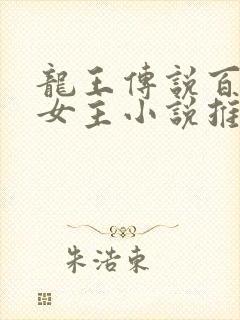 龍王傳說百
女主小說推
朱浩東